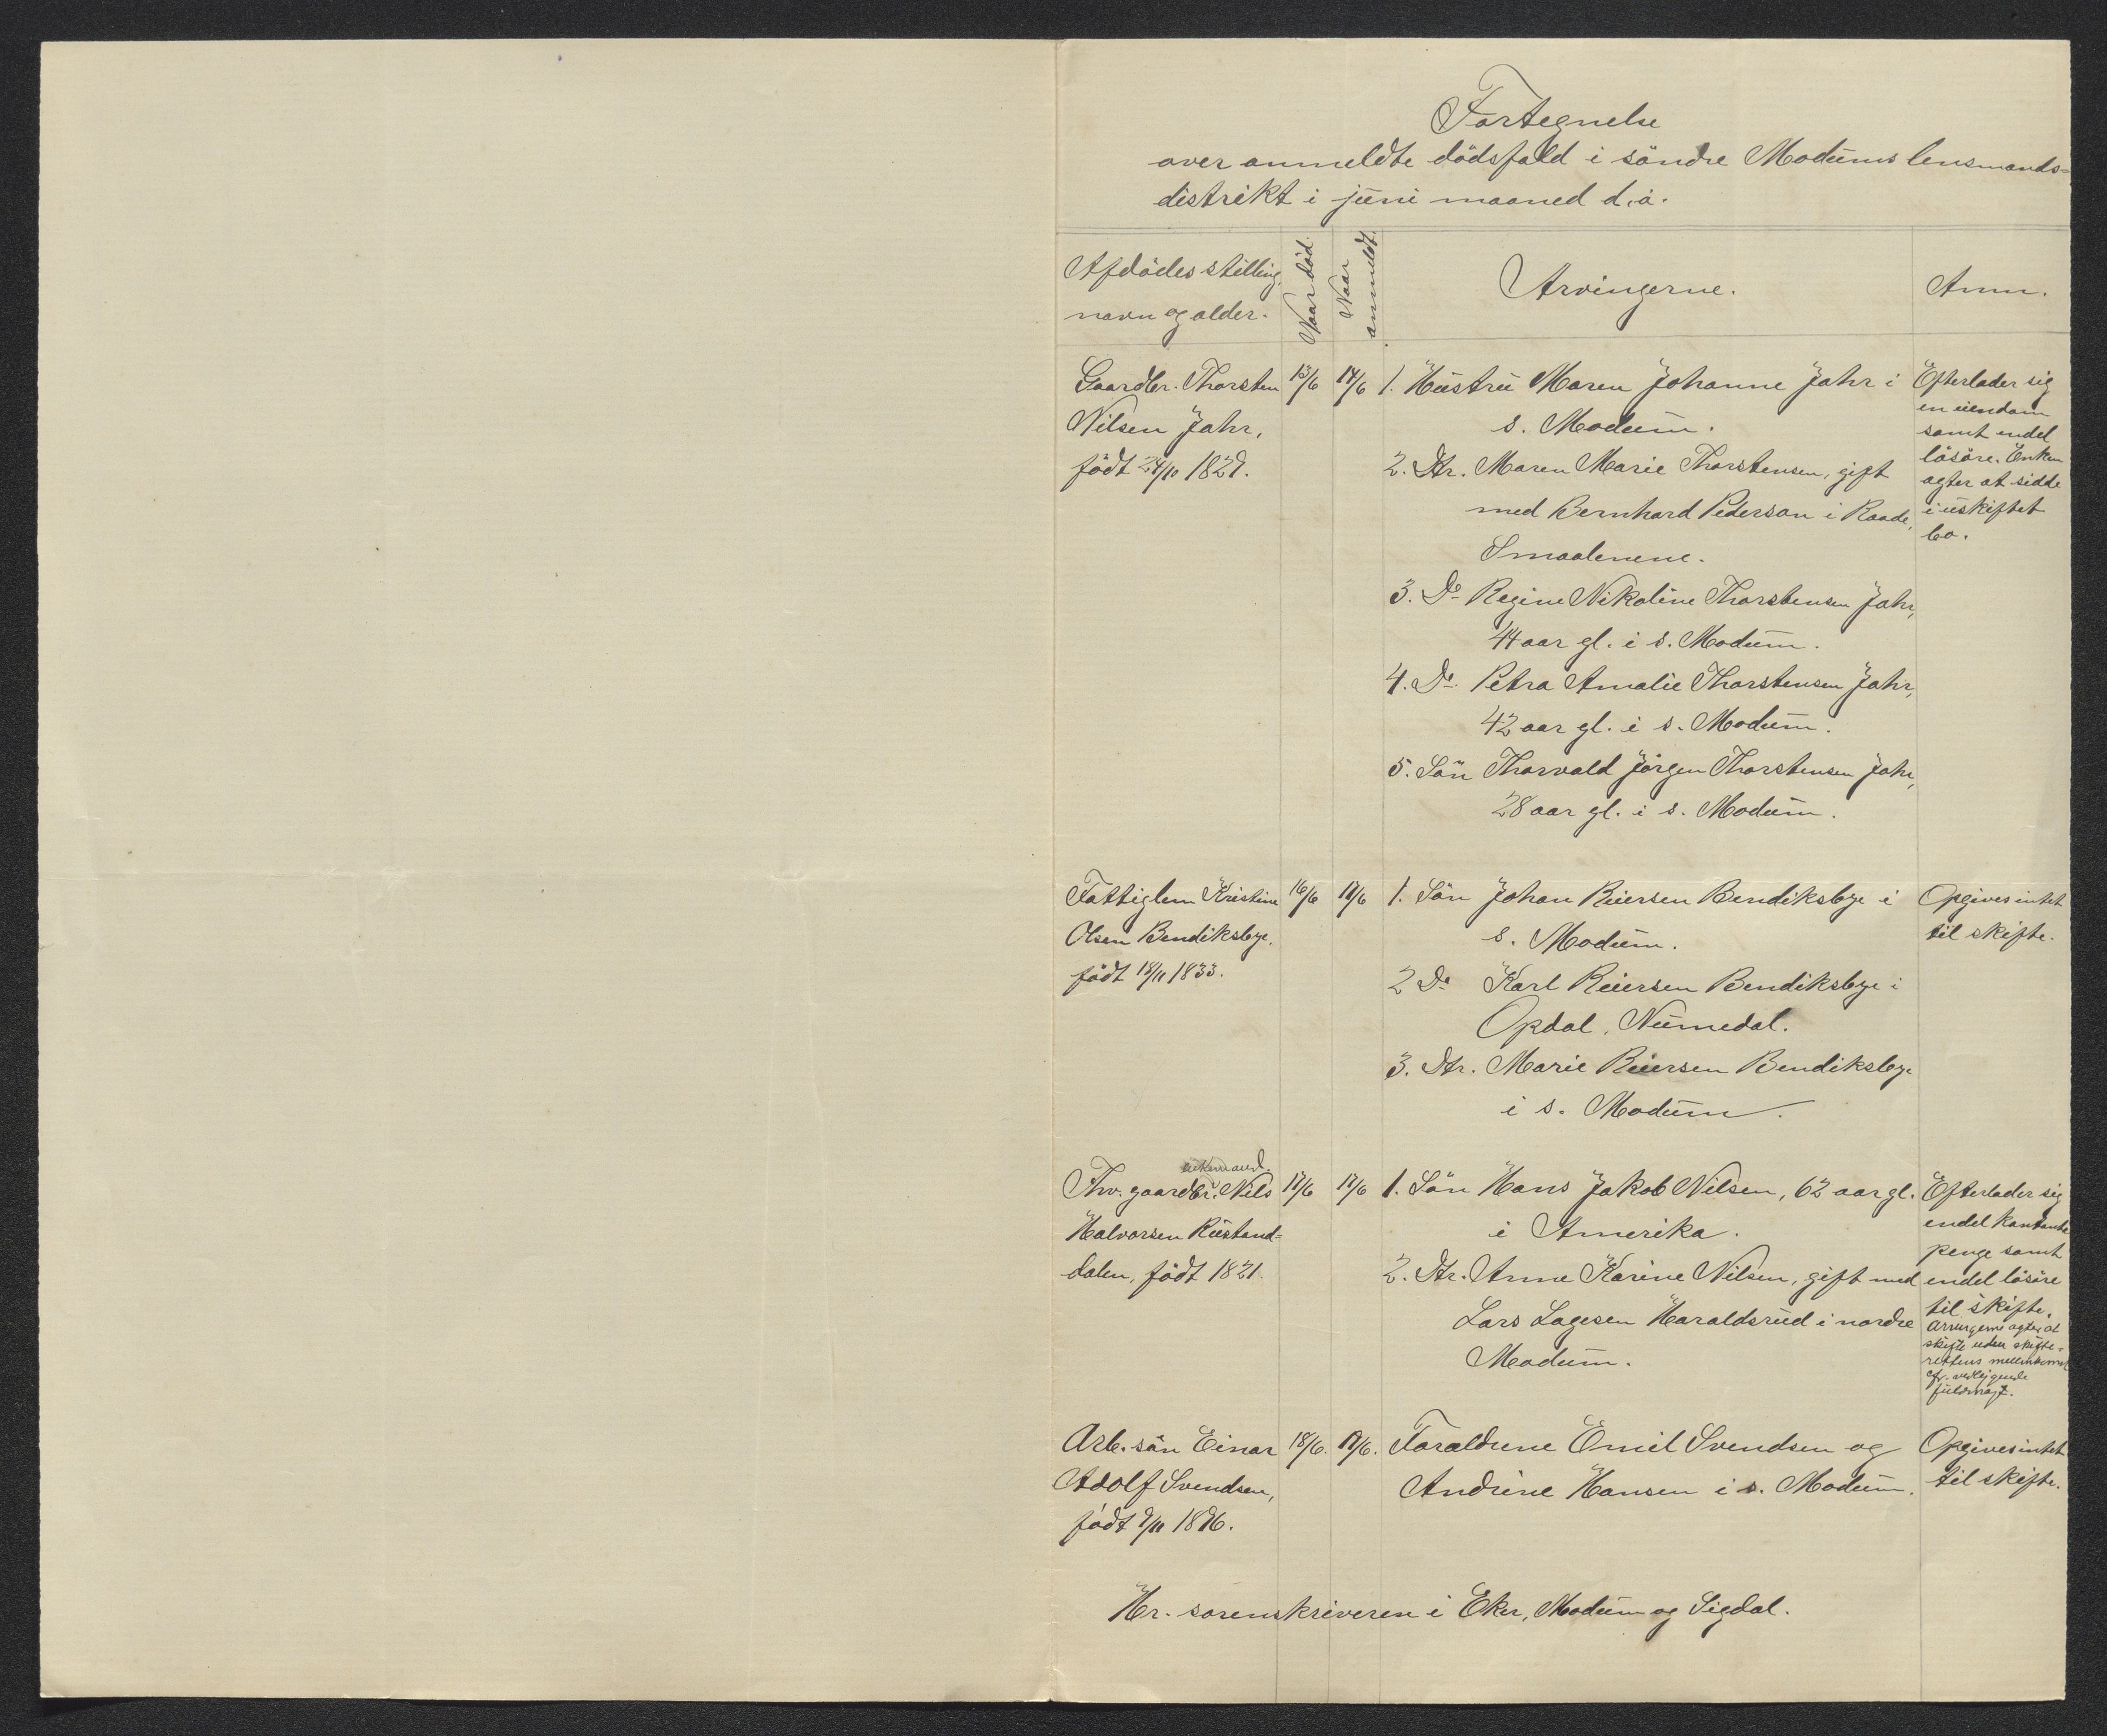 Fortegnelse
over anmeldte dödsfald i söndre Modums lensmands-
distrikt i juni maaned d.a.
Afdödes stilling,
navn og alder.
Naar död.
Naar
anmeldt.
Arvingerne.
Anm.
Gaardbr. Thorsten
Nilsen Jahr,
födt 24/10 1827.
13/6
14/6
1. Hustru Maren Johanne Jahr i
s. Modum.
2. Dtr. Maren Marie Thorstensen, gift
med Bernhard Pederson i Raade,
Smaalenene.
3. Do Regine Nikoline Thorstensen Jahr,
44 aar gl. i s. Modum.
4. Do Petra Amalie Thorstensen Jahr,
42 aar gl. i s. Modum.
5. Sön Thorvald Jörgen Thorstensen Jahr,
28 aar gl. i s. Modum.
Efterlader sig
en eiendom
samt endel
lösöre. Enken
agter at sidde
i uskiftet
bo.
Fattiglem Kristine
Olsen Bendiksbye,
födt 18/11 1833.
16/6
17/6
1. Sön Johan Reiersen Bendiksbye i
s. Modum.
2 Do Karl Reiersen Bendiksbye i
Opdal, Numedal.
3. Dtr. Marie Reiersen Bendiksbye
i s. Modum.
Opgives intet
til skifte.
enkemand.
Fhv. gaardbr. Nils
Halvorsen Rustand-
dalen, födt 1821.
17/6
17/6
1. Sön Hans Jakob Nilsen, 62 aar gl.
i Amerika.
2. Dtr. Anne Karine Nilsen, gift med
Lars Lagesen Haraldsrud i nordre
Modum.
Efterlader sig
endel kontante
penge samt
endel lösöre
til skifte.
Arvingerne agter at
skifte uden skifte-
rettens mellemkomst
cfr. vedliggende
fuldmagt.
Arb. sön Einar
Adolf Svendsen,
födt 9/11 1896.
18/6.
19/6.
Foraldrene Emil Svendsen og
Andrine Hansen i s. Modum.
Opgives intet
til skifte.
Hr. sorenskriveren i Eker, Modum og Sigdal.